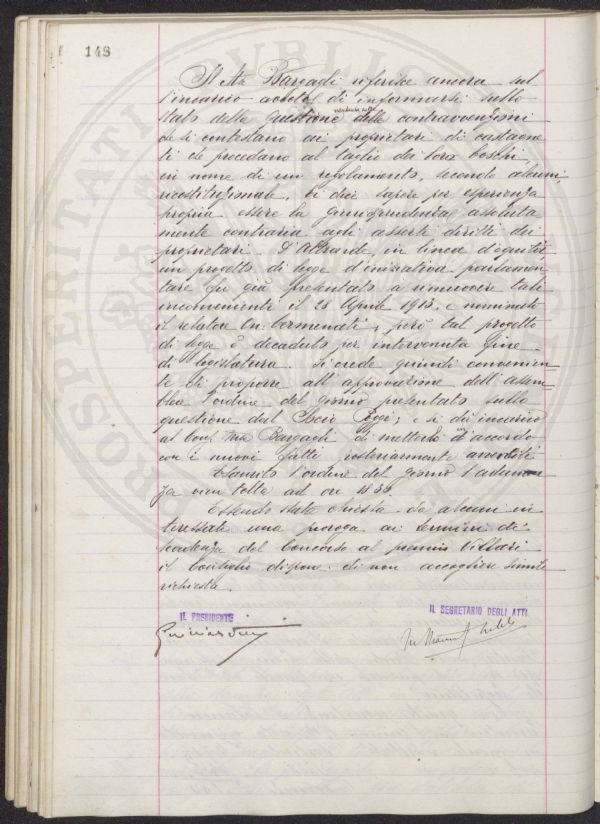 148
Il M.se Bargagli riferisce ancora sul
l'incarico avuto di informarsi sullo
stato della questione delle contravvenzioni
che si contestano ai proprietari di castagne
ti che procedano al taglio dei loro boschi,
in nome di un regolamento, secondo alcuni,
incostituzionale, ei dice sapere per esperienza
propria essere la giurisprudenza assoluta
mente contraria agli asserti diritti dei
proprietari. D'altronde, in linea d'equità,
un progetto di legge d'iniziativa parlamen
tare fu già presentato a rimuovere tali
inconvenienti il 28 Aprile 1913, e nominato
il relatore On: Cermenati, però tal progetto
di legge è decaduto per intervenuta fine
di legislatura. Si crede quindi convenien
te di proporre all'approvazione dell'Assem
blea l'ordine del giorno presentato sulla
questione dal Socio Poggi; e si dà incarico
al Cons. M.se Bargagli di metterlo d'accordo
con i nuovi fatti posteriormente avvertiti.
Esaurito l'ordine del giorno l'adunan
za vien tolta ad ore
Essendo stata chiesta da alcuni in
teressati una proroga ai termini di
scadenza del Concorso al premio Villari
il Consiglio dispone di non accogliere simile
richiesta.
IL PRESIDENTE
IL SEGRETARIO DEGLI ATTI